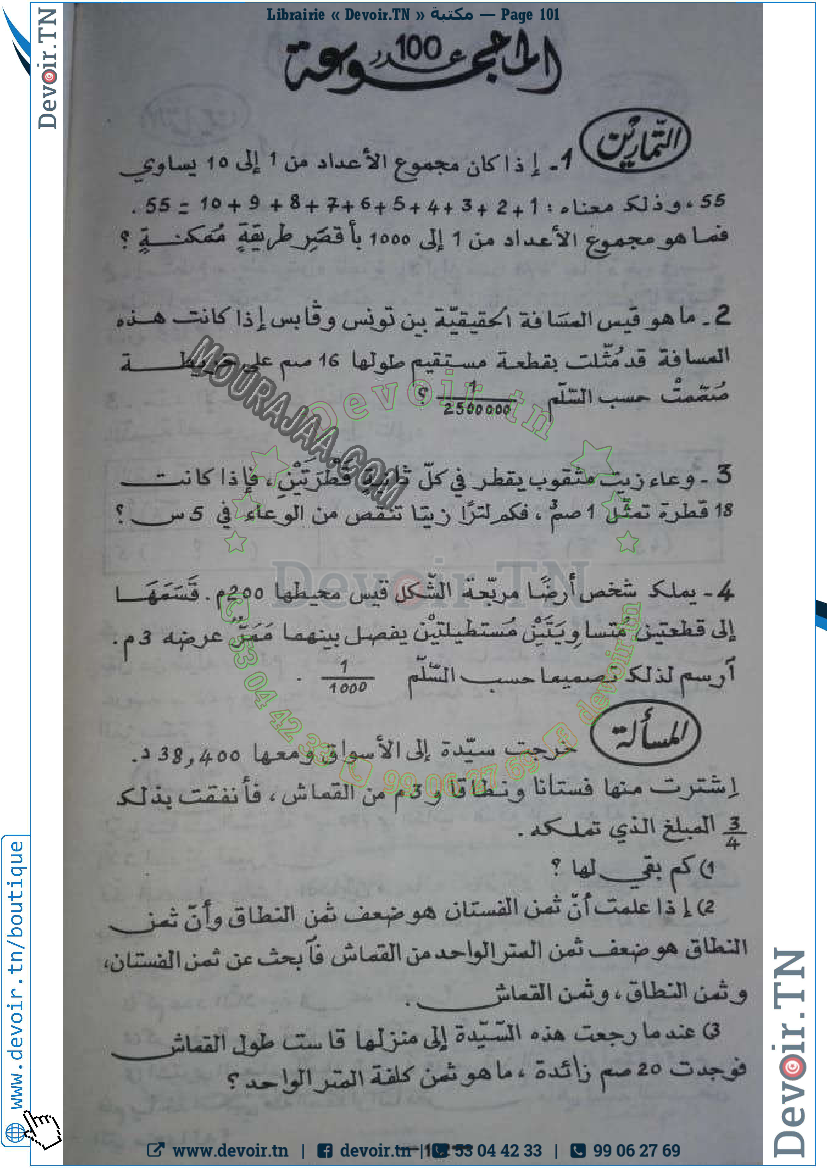 Librairie « Devoir.TN » مكتبة — Page 101
Devoir.TN
المجموعة عدد 100
التمارين
1- إذا كان مجموع الأعداد من 1 إلى 10 يساوي
55، وذلك معناه: 1+2+3+4+5+6+7+8+9+10=55.
فما هو مجموع الأعداد من 1 إلى 1000 بأقصَرِ طريقةٍ مُمكنةٍ؟
2- ما هو قيس المسَافة الحقيقيّة بين تونس وڨابس إذا كانت هذه
المسافة قد مُثّلت بقطعة مستقيم طولها 16 صم على خريطة
صُمّمتْ حسب السّلّم 1/2500000؟
3- وعاء زيت مثقوب يقطر في كلّ ثانية قَطْرَتَيْنِ، فإذا كانت
18 قطرة تمثّل 1 صم³، فكم لترًا زيتا تنقص من الوعاء في 5 س؟
4- يملك شخص أرضًا مربّعة الشّكل قيس محيطها 200م. قَسَمَهَا
إلى قطعتين مُتساوِيَتَيْنِ مُستطيلتيْن يفصل بينهما مَمَرٌّ عرضه 3م.
أرسم لذلك تصميما حسب السّلّم 1/1000.
المسألة
خرجت سيّدة إلى الأسواق ومعها 38,400د.
إشترت منها فستانا ونطاقا و3م من القماش، فأنفقت بذلك
3/4 المبلغ الذي تملكه.
1) كم بقي لها؟
2) إذا علمت أنّ ثمن الفستان هو ضعف ثمن النطاق وأنّ ثمن
النطاق هو ضعف ثمن المتر الواحد من القماش فآبحث عن ثمن الفستان،
وثمن النطاق، وثمن القماش.
3) عندما رجعت هذه السّيّدة إلى منزلها قاست طول القماش
فوجدت 20 صم زائدة، ما هو ثمن كلفة المتر الواحد؟
MOURAJAA.COM
Devoir.tn
Devoir.TN
53 04 42 33
99 06 27 69
devoir.tn
www.devoir.tn/boutique
Devoir.TN
www.devoir.tn | devoir.tn | 53 04 42 33 | 99 06 27 69